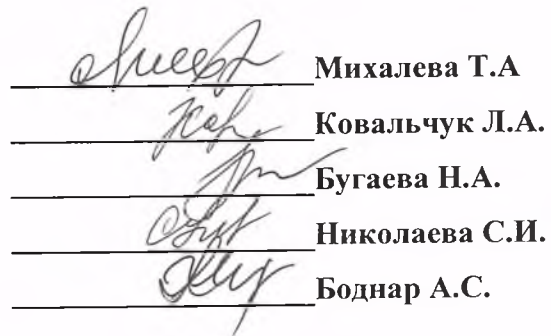 Михалева Т.А
Ковальчук Л.А.
Бугаева Н.А.
Николаева С.И.
Боднар А.С.